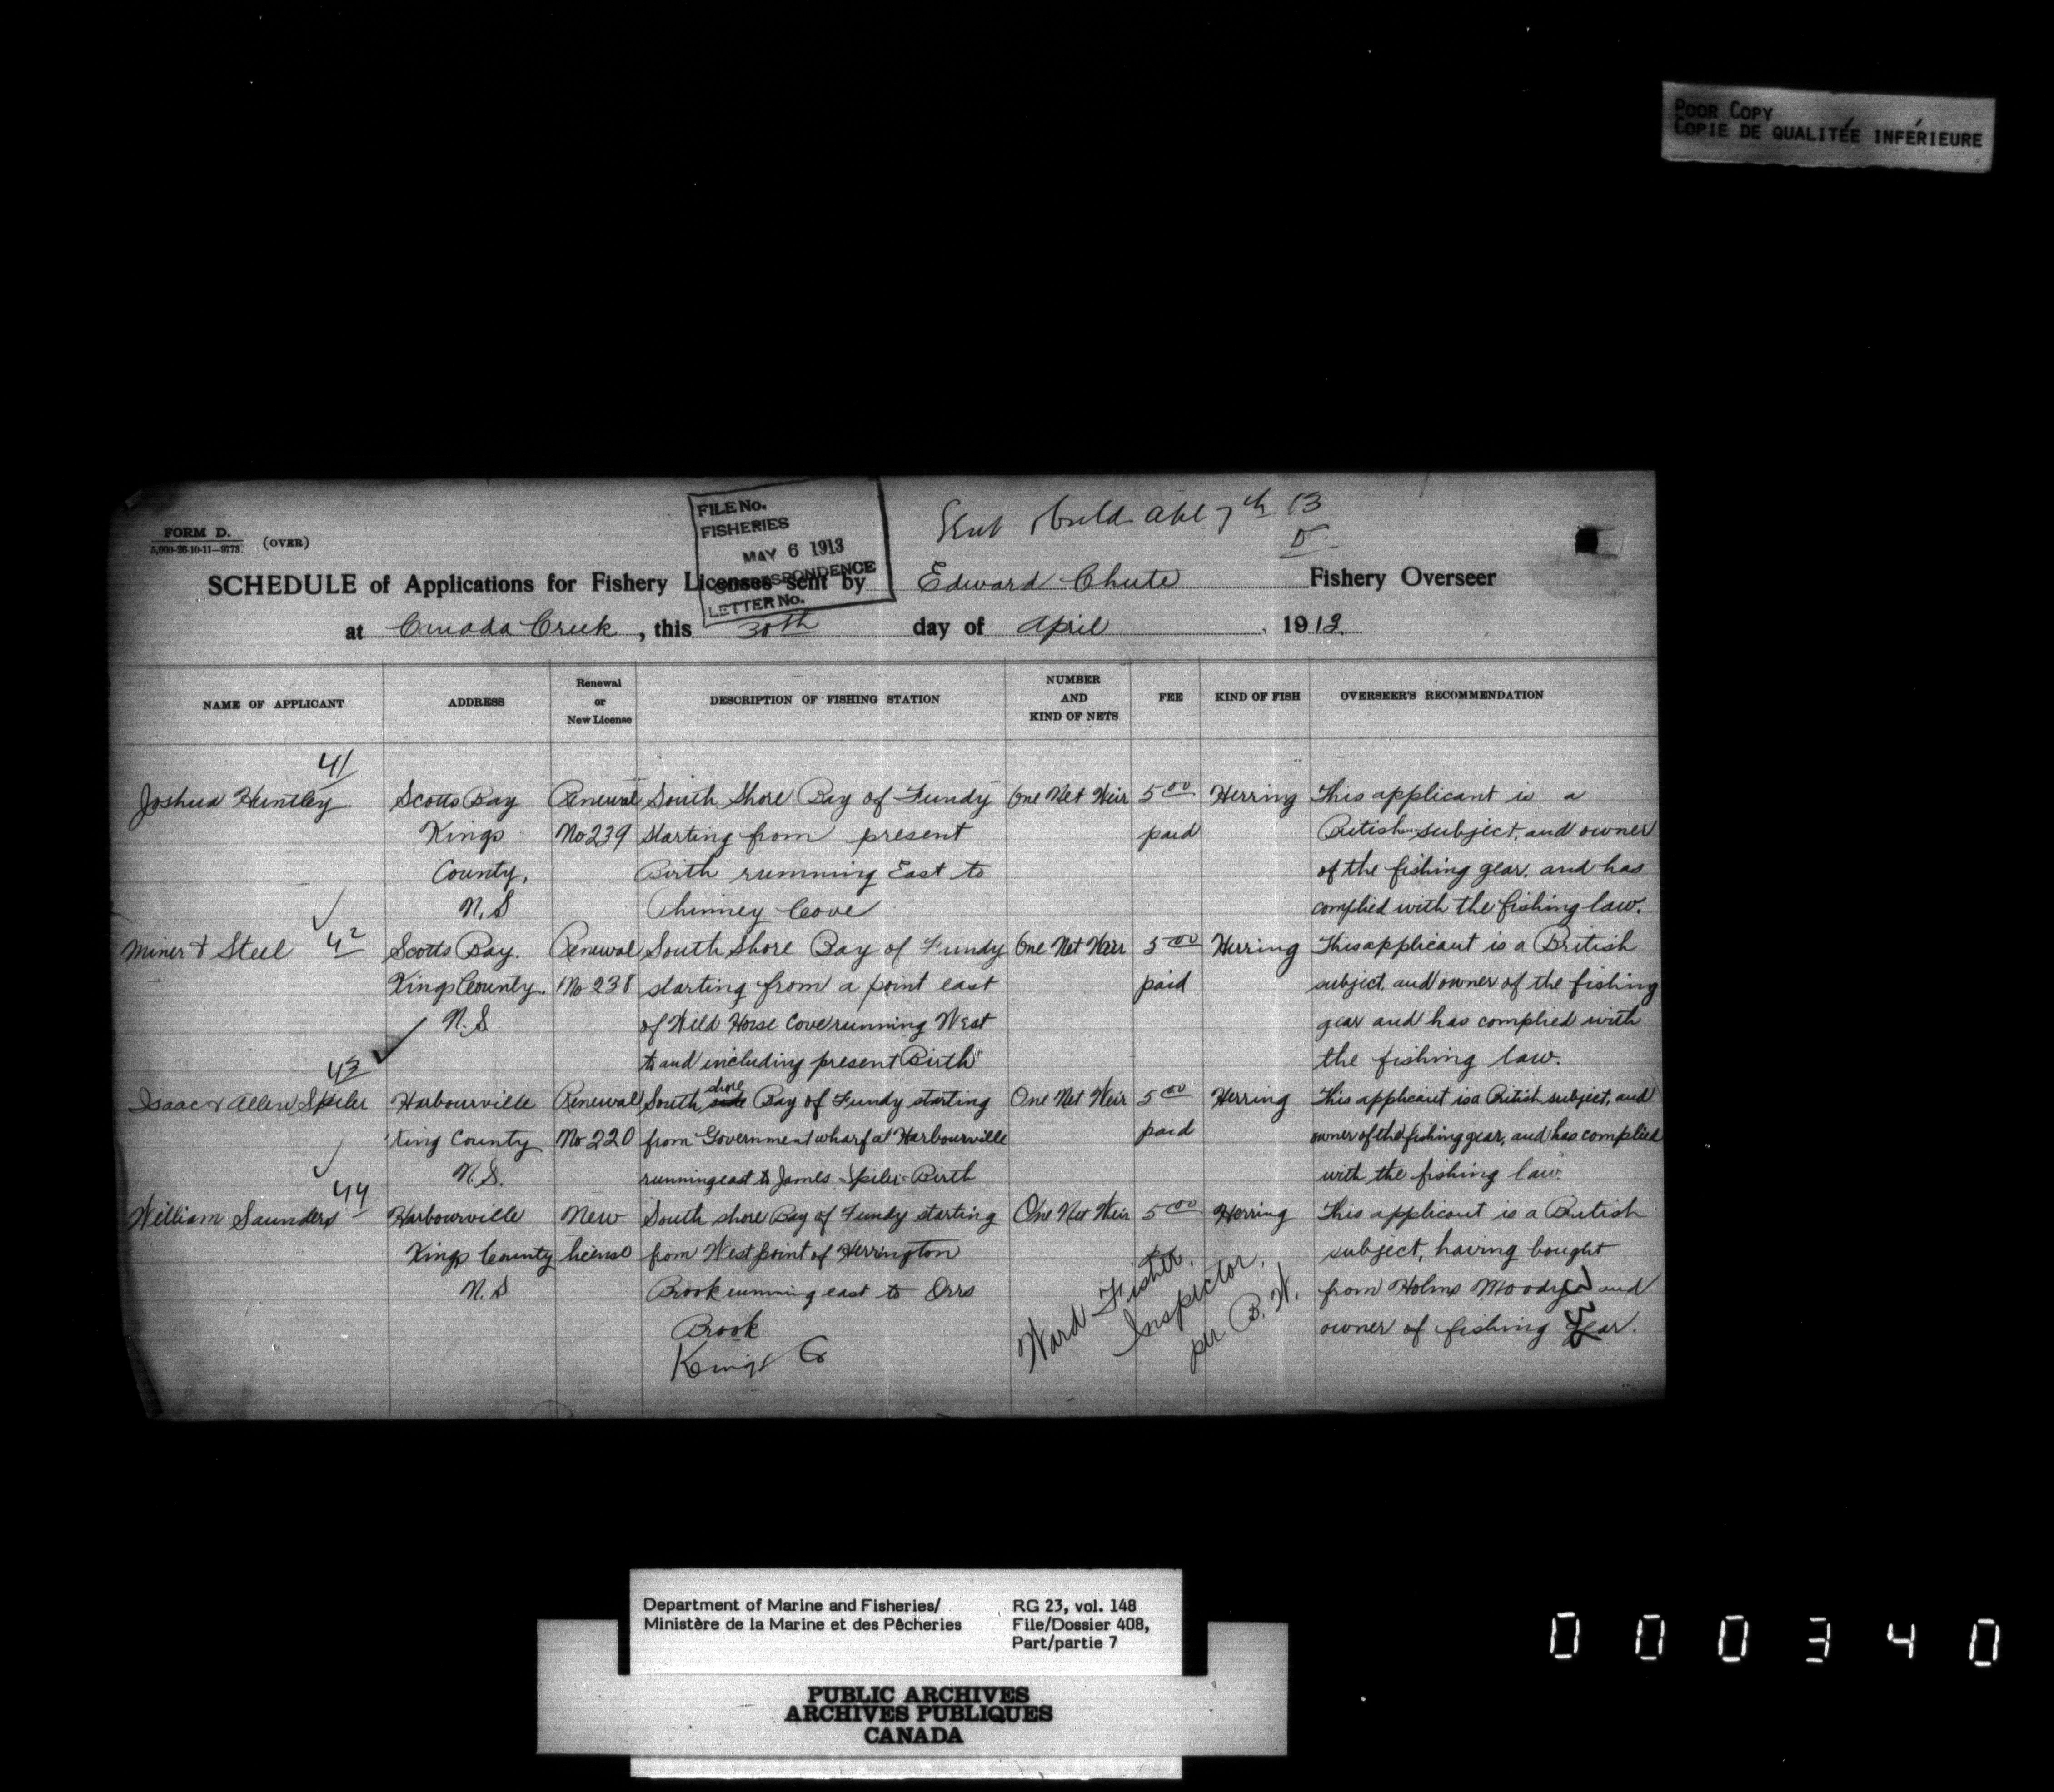 POOR COPY
COPIE DE QUALITÉE INFÉRIEURE
FORM D.
5,000-26-10-11—9773.
(OVER)
FILE No.
FISHERIES
MAY 6 1913
CORRESPONDENCE
LETTER No.
7th 13
SCHEDULE of Applications for Fishery Licenses sent by Edward Chute Fishery Overseer
at Canada Creek, this 30th day of April 1913.
NAME OF APPLICANT ADDRESS Renewal or New License DESCRIPTION OF FISHING STATION NUMBER AND KIND OF NETS FEE KIND OF FISH OVERSEER'S RECOMMENDATION
41
Joshua Huntley Scotts Bay Renewal South Shore Bay of Fundy One Net Weir 5 00 Herring This applicant is a
Kings No 239 starting from present paid British subject, and owner
County, Birth running East to of the fishing gear, and has
N.S Chinney Cove complied with the fishing law.
Miner & Steel 42 Scotts Bay. Renewal South Shore Bay of Fundy One Net Weir 5 00 Herring This applicant is a British
Kings County. No 238 starting from a point east paid subject, and owner of the fishing
N.S. of Wild Horse Cove running West gear and has complied with
43 to and including present Birth the fishing law.
Isaac & Allen Spiler Harbourville Renewal South side shore Bay of Fundy starting One Net Weir 5 00 Herring This applicant is a British subject, and
King County No 220 from Government wharf at Harbourville paid owner of the fishing gear, and has complied
N.S. running east to James Spiler Birth with the fishing law.
44
William Saunders Harbourville New South shore Bay of Fundy starting One Net Weir 5 00 Herring This applicant is a British
Kings County license from West point of Herrington subject, having bought
N.S Brook running east to Orrs from Holms Moody and
Brook owner of fishing gear.
Kings Co
Ward Fisher.
Inspector.
per B. W.
Department of Marine and Fisheries/
Ministère de la Marine et des Pêcheries
RG 23, vol. 148
File/Dossier 408,
Part/partie 7
PUBLIC ARCHIVES
ARCHIVES PUBLIQUES
CANADA
000340